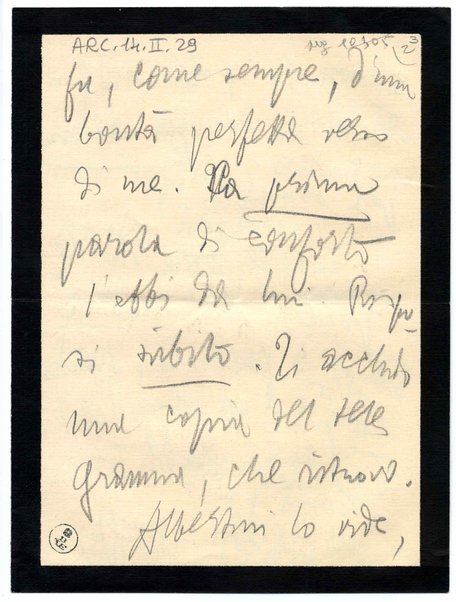 ARC.14.II.29
fu, come sempre, d'una
bontà perfetta verso
di me. La prima
parola di conforto
l'ebbi da lui. Rispo-
si subito. Ti accludo
una copia del tele
gramma, che ritrovo.
Albertini lo vide,